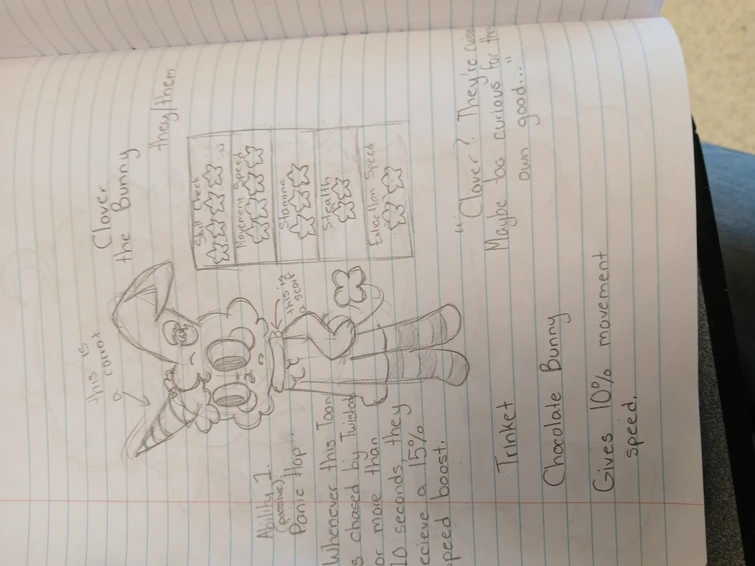 Clover
the Bunny
they/them
this is
a carrot
Skill Check
Movement Speed
Stamina
Stealth
Extraction Speed
this is
a scarf
Ability 1
(passive)
Panic Hop
Whenever this Toon
is chased by Twisteds
or more than
10 seconds, they
recieve a 15%
speed boost.
"Clover? They're
Maybe too curious for
own good..."
Trinket
Chocolate Bunny
Gives 10% movement
speed.